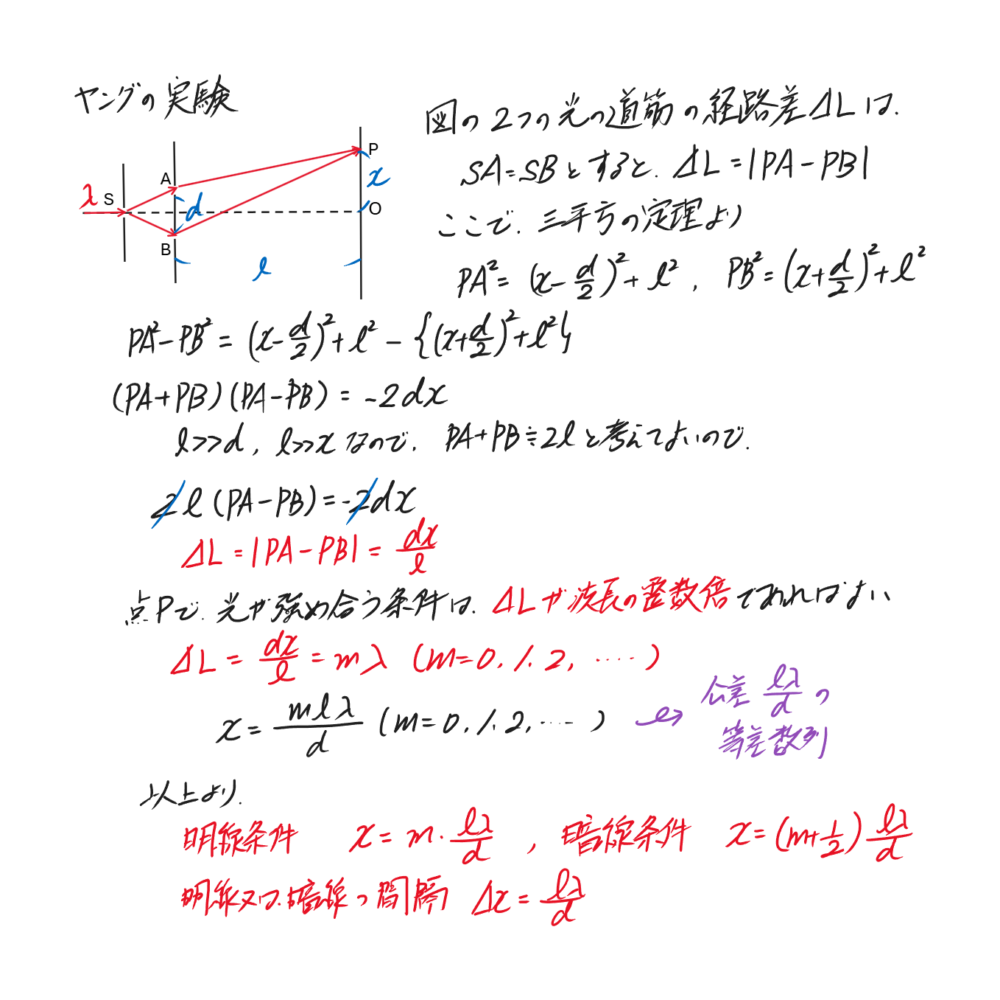 ヤングの実験
λ S A B d ℓ P x O
図の2つの光の道筋の経路差ΔLは、
SA=SBとすると、ΔL=|PA-PB|
ここで、三平方の定理より
PA²=(x-d/2)²+ℓ², PB²=(x+d/2)²+ℓ²
PA²-PB²=(x-d/2)²+ℓ²-{(x+d/2)²+ℓ²}
(PA+PB)(PA-PB)=-2dx
ℓ>>d, ℓ>>xなので、PA+PB≒2ℓと考えてよいので、
2ℓ(PA-PB)=-2dx
ΔL=|PA-PB|=dx/ℓ
点Pで、光が強め合う条件は、ΔLが波長の整数倍であればよい
ΔL=dx/ℓ=mλ (m=0,1,2,‥‥)
x=mℓλ/d (m=0,1,2,‥‥) → 公差 ℓλ/d の
等差数列
以上より、
明線条件 x=m・ℓλ/d , 暗線条件 x=(m+1/2)ℓλ/d
明線又は、暗線の間隔 Δx=ℓλ/d